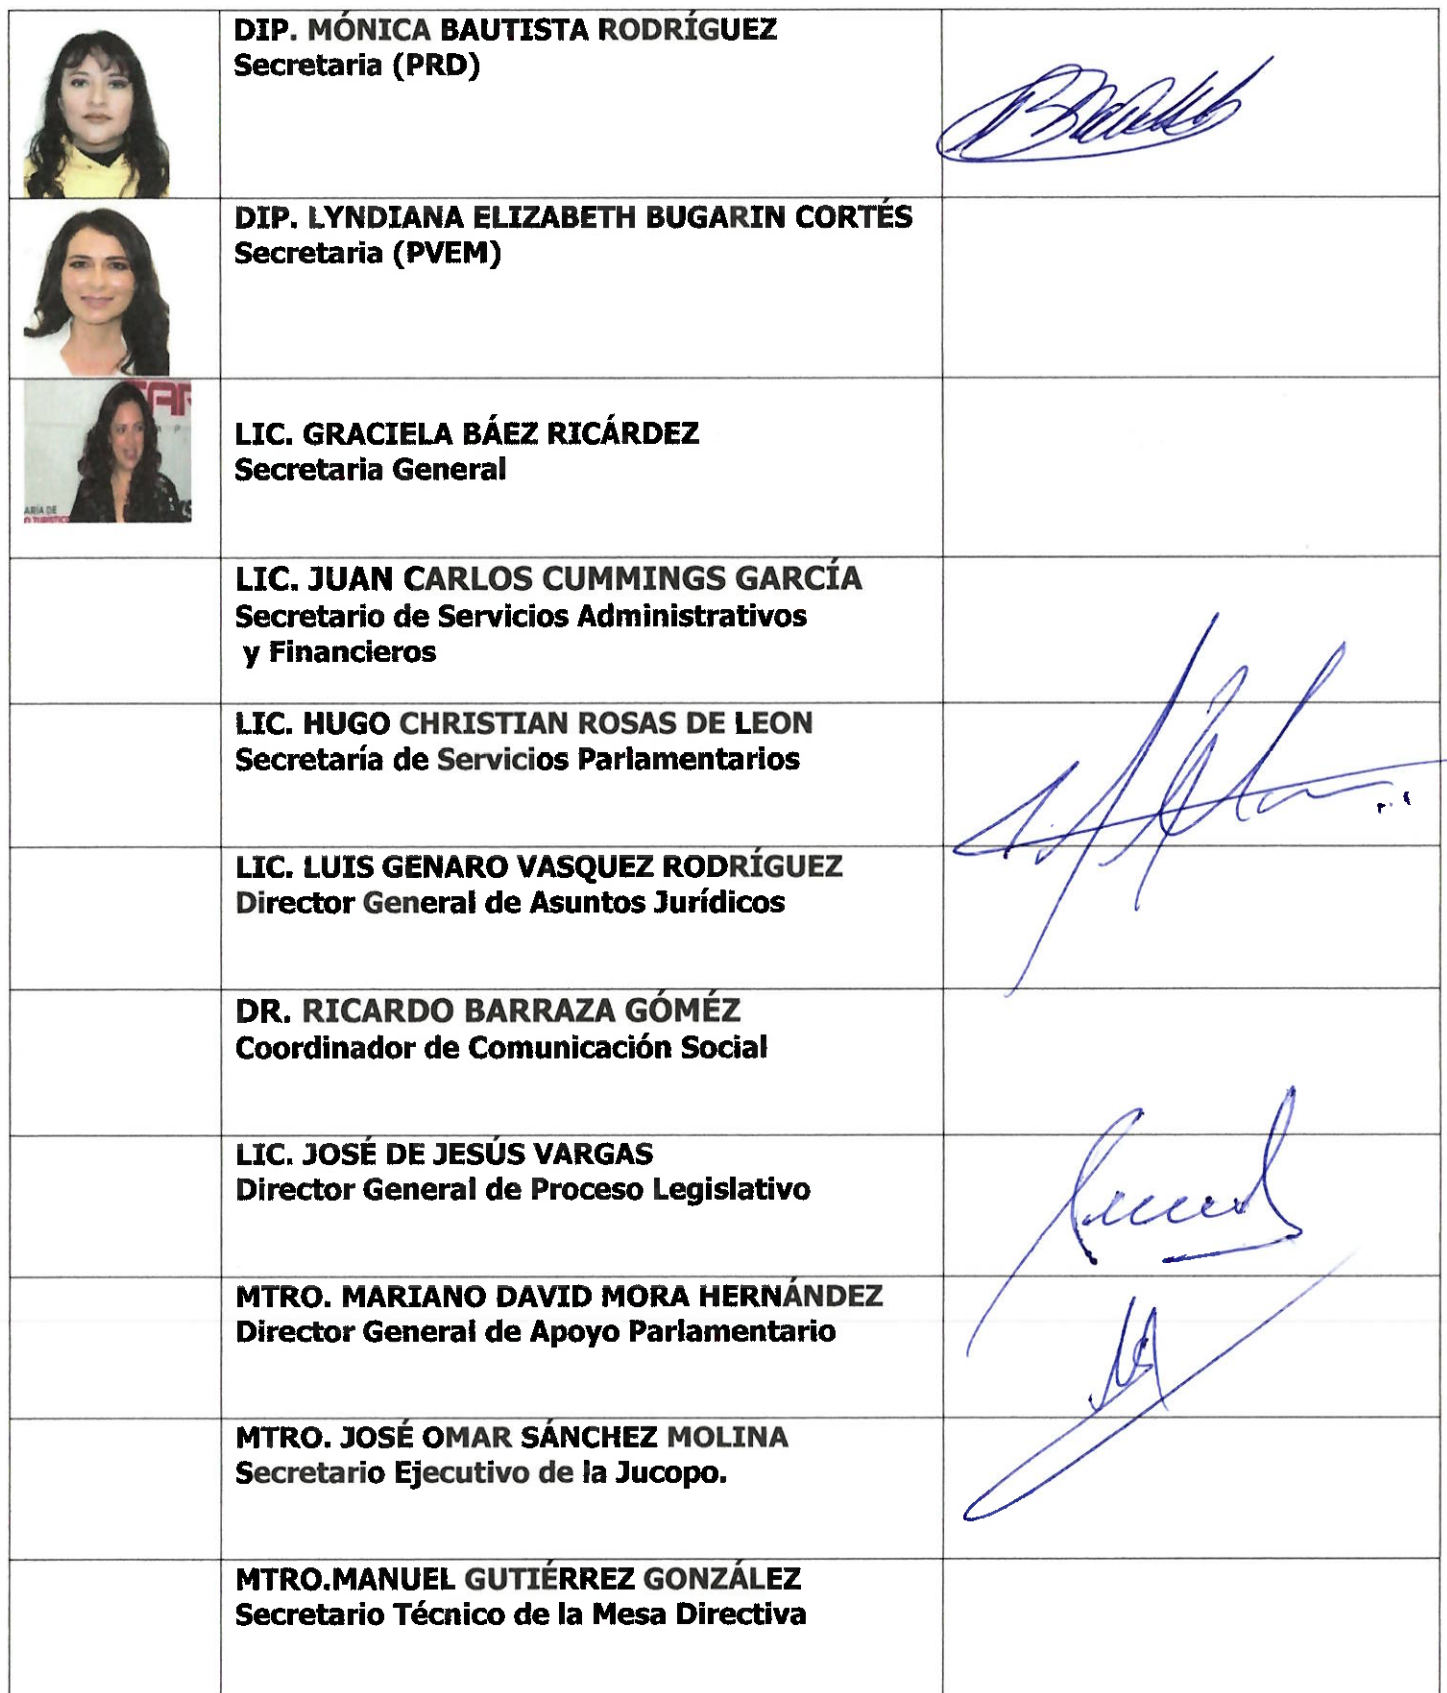 DIP. MÓNICA BAUTISTA RODRÍGUEZ
Secretaria (PRD)
DIP. LYNDIANA ELIZABETH BUGARIN CORTÉS
Secretaria (PVEM)
LIC. GRACIELA BÁEZ RICÁRDEZ
Secretaria General
LIC. JUAN CARLOS CUMMINGS GARCÍA
Secretario de Servicios Administrativos
y Financieros
LIC. HUGO CHRISTIAN ROSAS DE LEON
Secretaría de Servicios Parlamentarios
LIC. LUIS GENARO VASQUEZ RODRÍGUEZ
Director General de Asuntos Jurídicos
DR. RICARDO BARRAZA GÓMÉZ
Coordinador de Comunicación Social
LIC. JOSÉ DE JESÚS VARGAS
Director General de Proceso Legislativo
MTRO. MARIANO DAVID MORA HERNÁNDEZ
Director General de Apoyo Parlamentario
MTRO. JOSÉ OMAR SÁNCHEZ MOLINA
Secretario Ejecutivo de la Jucopo.
MTRO.MANUEL GUTIÉRREZ GONZÁLEZ
Secretario Técnico de la Mesa Directiva